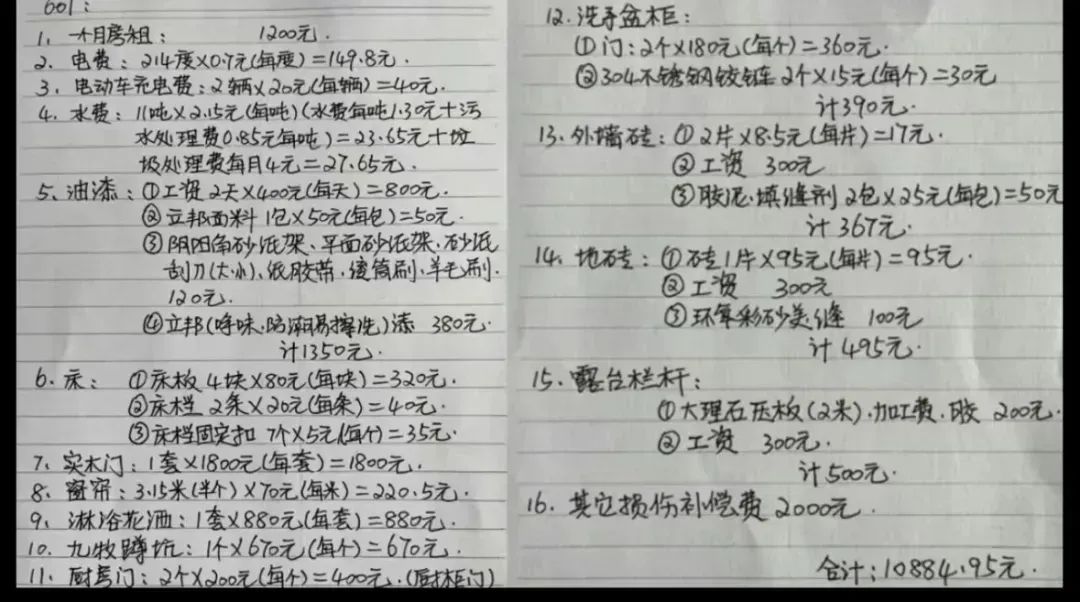 601:
1、一个月房租: 1200元.
2、电费: 214度×0.7元(每度)=149.8元.
3、电动车充电费: 2辆×20元(每辆)=40元.
4、水费: 11吨×2.15元(每吨)(水费每吨1.30元+污
水处理费0.85元每吨)=23.65元+垃
圾处理费每月4元=27.65元.
5、油漆: ①工资 2天×400元(每天)=800元.
②立邦面料 1包×50元(每包)=50元.
③阴阳角砂纸架、平面砂纸架、砂纸
刮刀(大小)、纸胶带、滚筒刷、羊毛刷.
120元.
④立邦(净味.防潮易擦洗)漆 380元.
计1350元.
6、床: ①床板 4块×80元(每块)=320元.
②床档 2条×20元(每条)=40元.
③床档固定扣 7个×5元(每个)=35元.
7、实木门: 1套×1800元(每套)=1800元.
8、窗帘: 3.15米(半个)×70元(每米)=220.5元.
9、淋浴花洒: 1套×880元(每套)=880元.
10、九牧蹲坑: 1个×670元(每个)=670元.
11、厨房门: 2个×200元(每个)=400元.(厨柜门)
12、洗手盆柜:
①门: 2个×180元(每个)=360元.
②304不锈钢铰链 2个×15元(每个)=30元
计390元.
13、外墙砖: ①2片×8.5元(每片)=17元.
②工资 300元
③胶泥.填缝剂 2包×25元(每包)=50元
计367元.
14、地砖: ①砖1片×95元(每片)=95元.
②工资 300元
③环氧彩砂美缝 100元
计495元.
15、露台栏杆:
①大理石压板(2米).加工费.胶 200元.
②工资 300元.
计500元.
16、其它损伤补偿费 2000元.
合计:10884.95元.